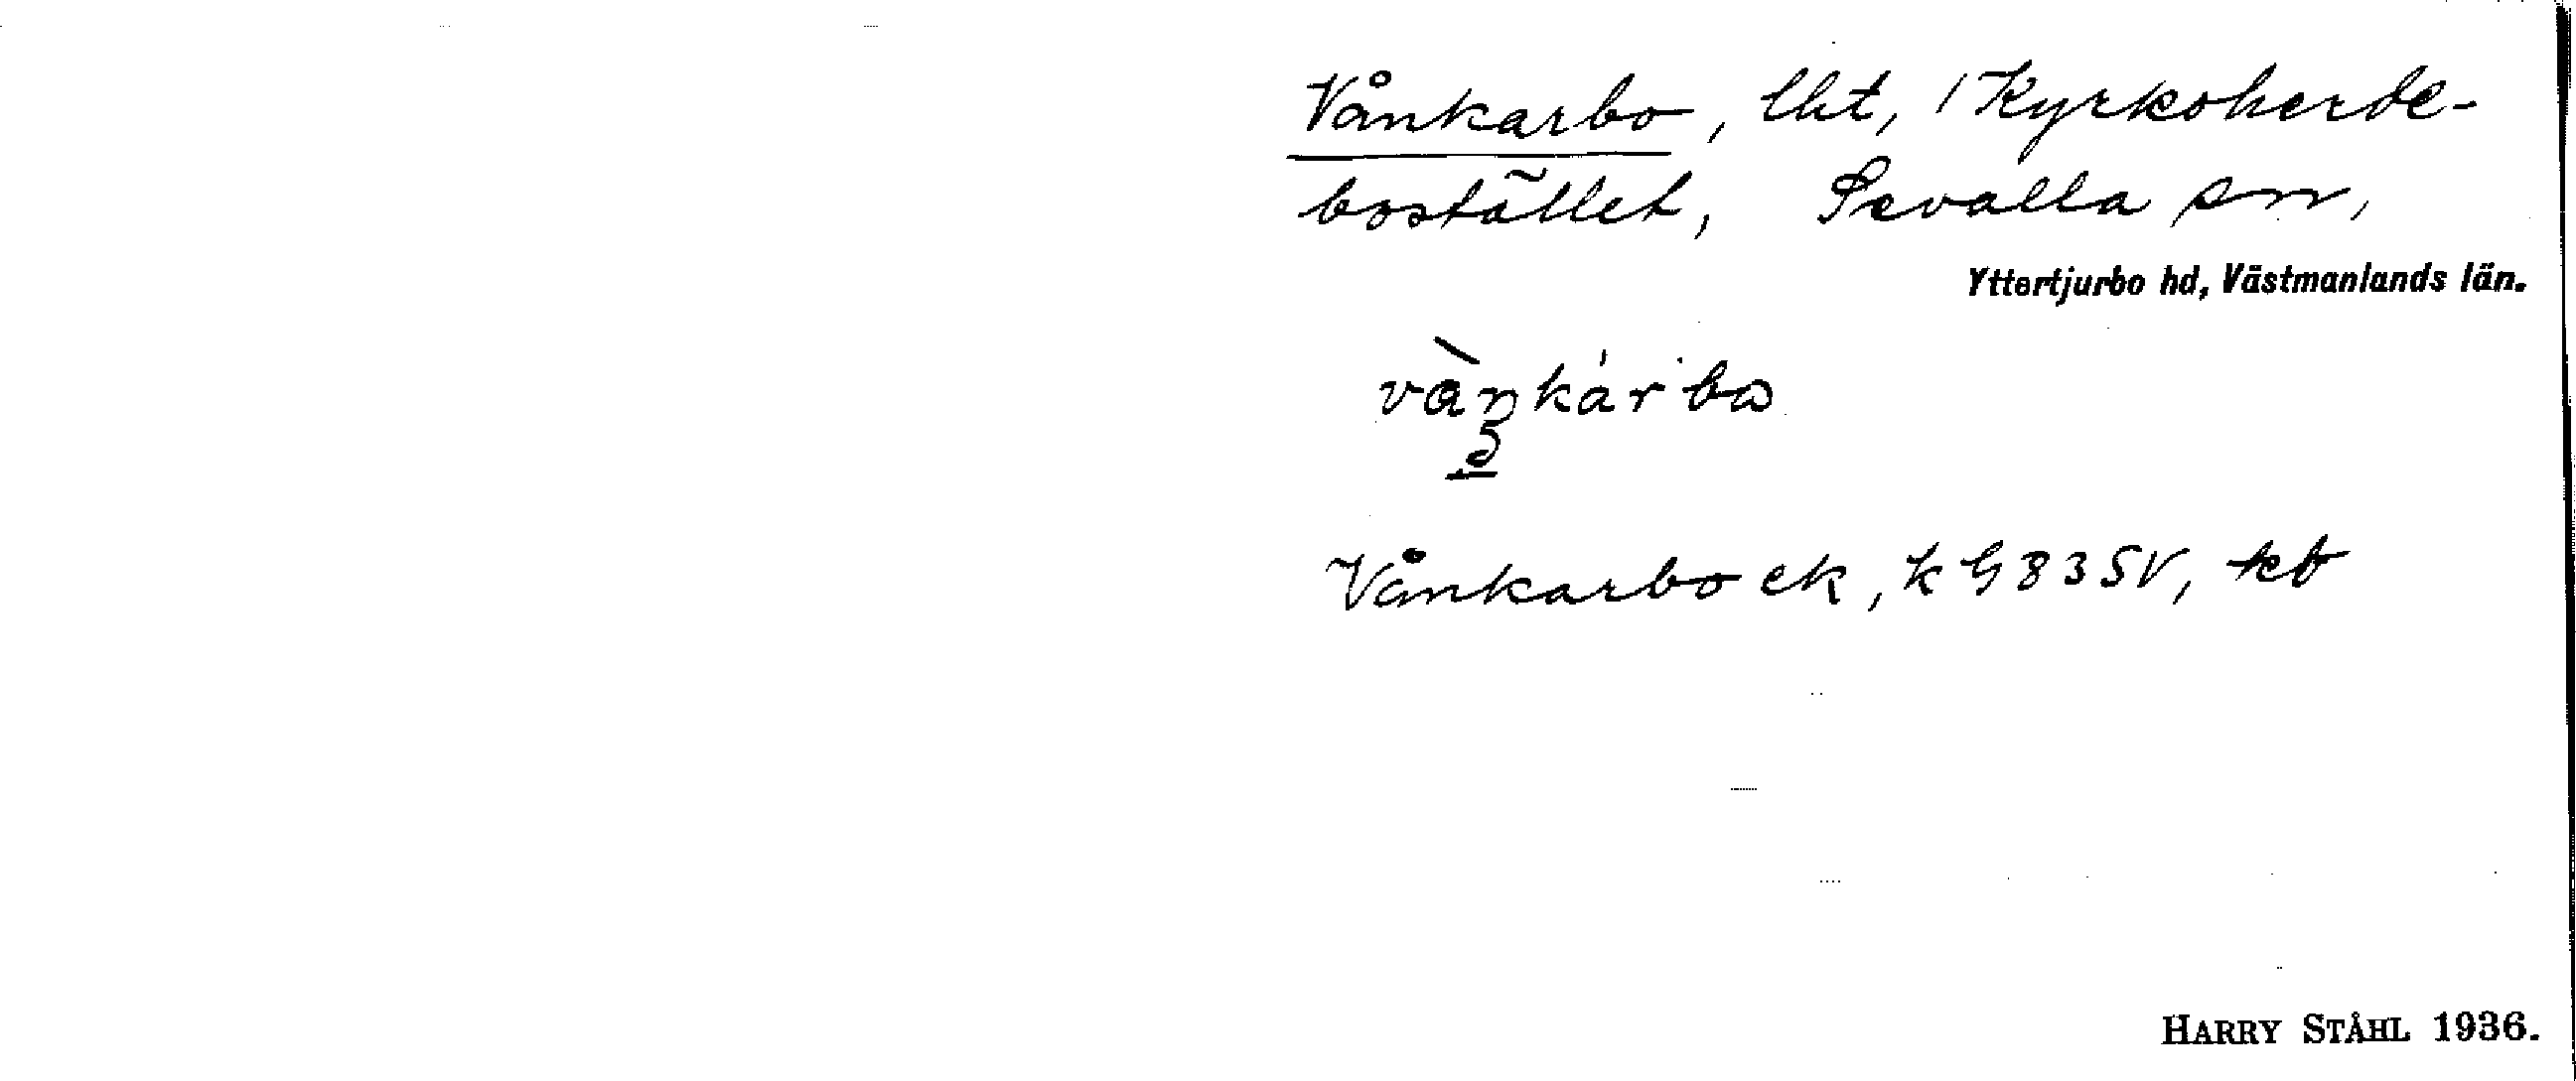 Vånkarbo, lht, 1 Kyrkoherde-
bostället, Sevalla sn,
Yttertjurbo hd, Västmanlands län.
Vånkarbo ek, k G 83 SV, kb
HARRY STÅHL 1936.